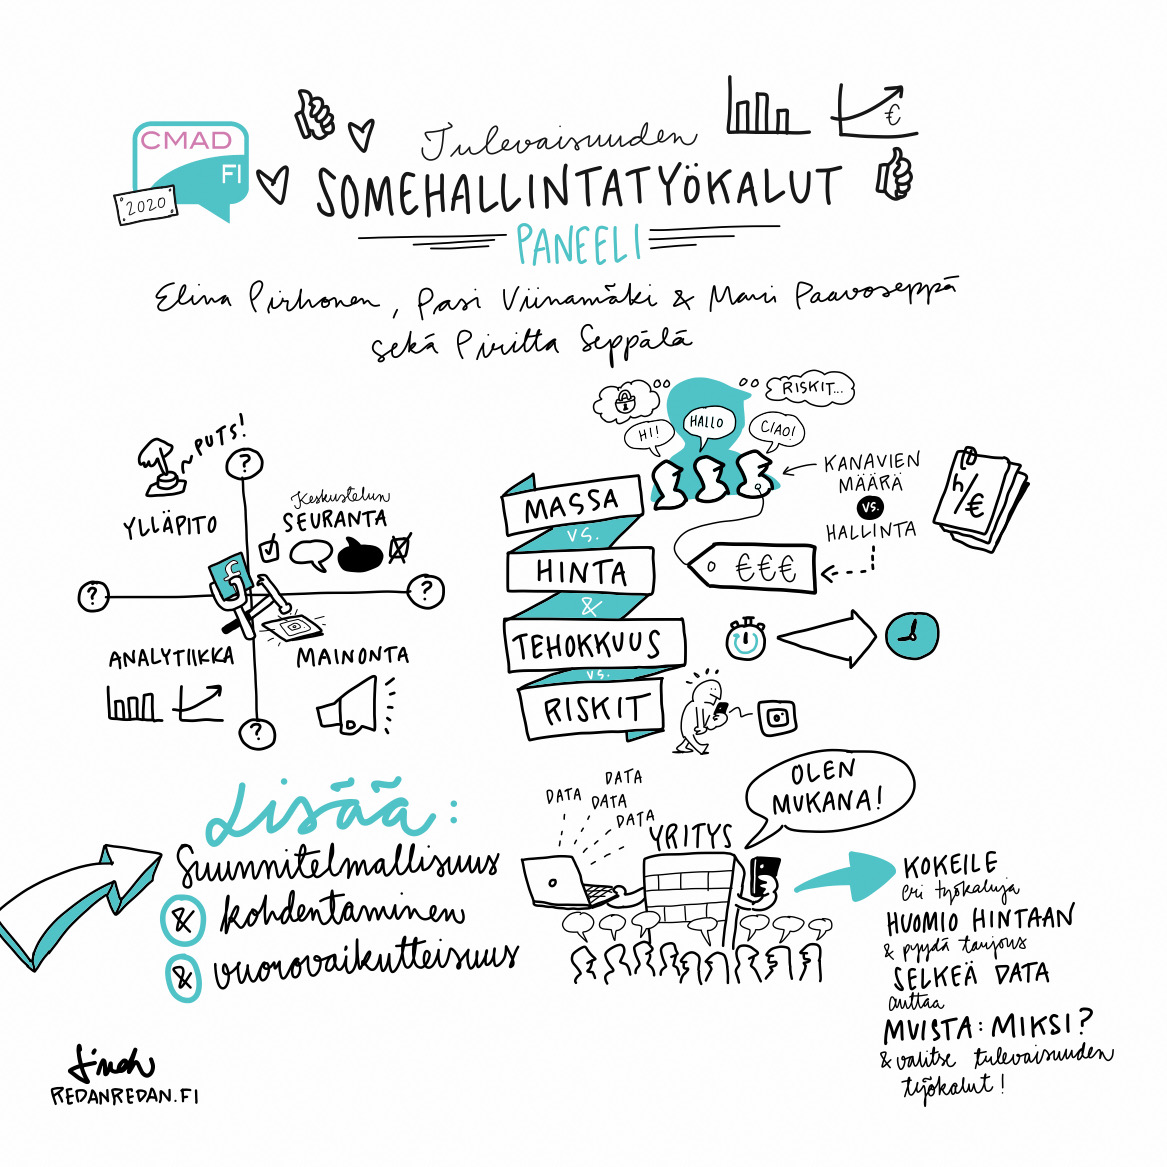 CMAD
FI
2020
Tulevaisuuden
SOMEHALLINTATYÖKALUT
PANEELI
€
Elina Pirhonen, Pasi Viinamäki & Mari Paavoseppä
sekä Piritta Seppälä
PUTS!
?
YLLÄPITO
Keskustelun
SEURANTA
?
f
?
ANALYTIIKKA
MAINONTA
?
RISKIT...
HI!
HALLO
CIAO!
MASSA
vs.
HINTA
&
TEHOKKUUS
vs.
RISKIT
KANAVIEN
MÄÄRÄ
vs.
HALLINTA
h/€
€€€
Lisää:
Suunnitelmallisuus
& kohdentaminen
& vuorovaikutteisuus
DATA
DATA
DATA
DATA
YRITYS
OLEN
MUKANA!
KOKEILE
eri työkaluja
HUOMIO HINTAAN
& pyydä tarjous
SELKEÄ DATA
auttaa
MUISTA: MIKSI?
& valitse tulevaisuuden
työkalut!
REDANREDAN.FI